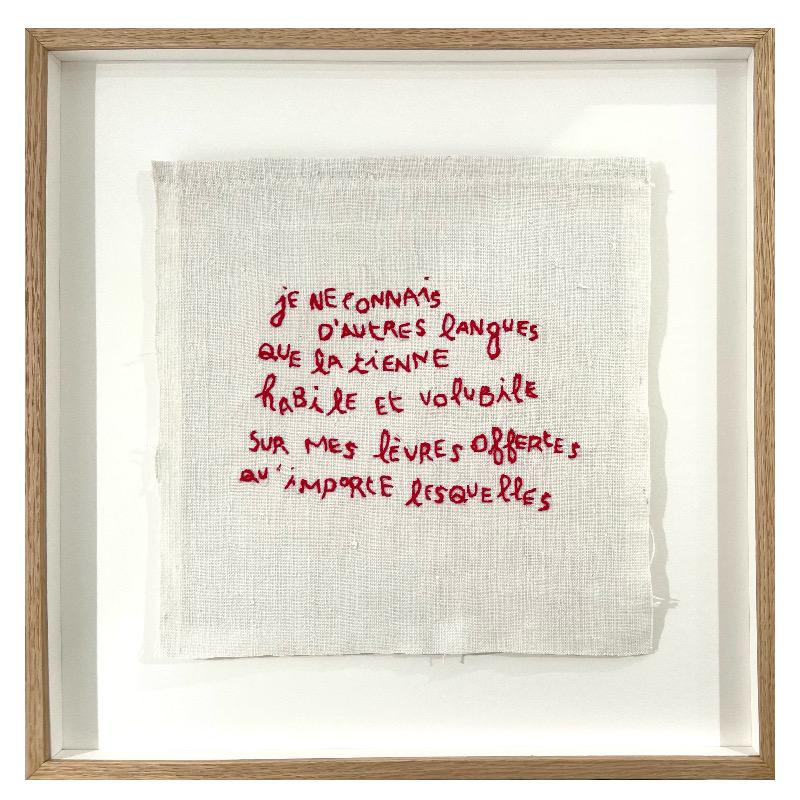 jE NE CONNAis
D'AUTRES lANgUES
QUE lA tiENNE
hABilE Et VolUBilE
SUR MES lÈVRES OffERtES
QU'iMPORtE lESQUEllES